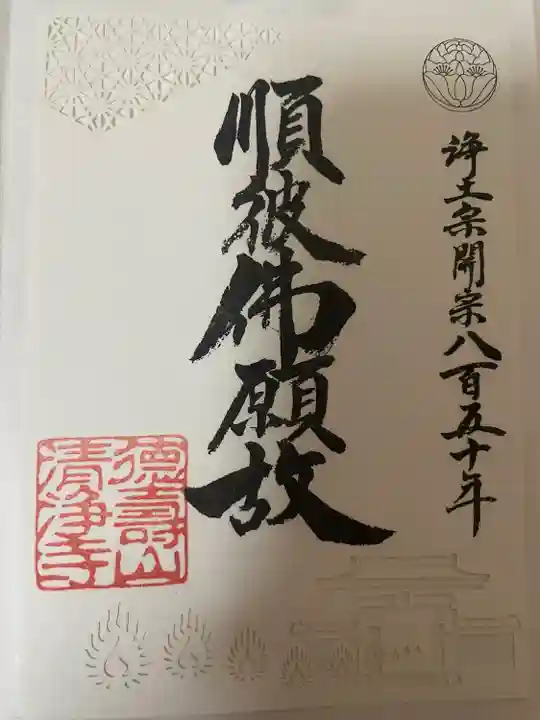 浄土宗開宗八百五十年
順彼佛願故
德壽山
清浄寺